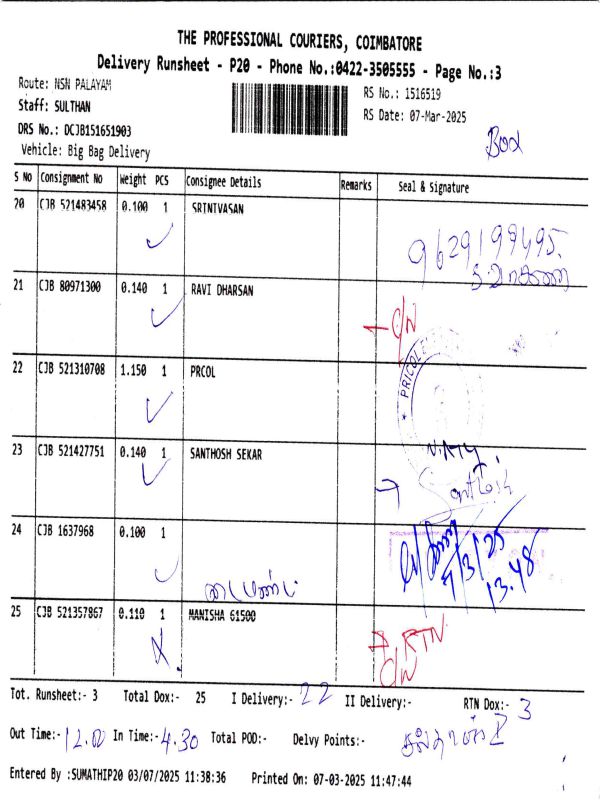 THE PROFESSIONAL COURIERS, COIMBATORE
Delivery Runsheet - P20 - Phone No.:0422-3505555 - Page No.:3
Route: NSN PALAYAM
RS No.: 1516519
Staff: SULTHAN
RS Date: 07-Mar-2025
DRS No.: DCJB151651903
Vehicle: Big Bag Delivery
Box
S No Consignment No Weight PCS Consignee Details Remarks Seal & Signature
20 CJB 521483458 0.100 1 SRINIVASAN
9629199495.
21 CJB 80971300 0.140 1 RAVI DHARSAN
C/N
22 CJB 521310708 1.150 1 PRCOL
PRICOL
23 CJB 521427751 0.140 1 SANTHOSH SEKAR
Santosh
24 CJB 1637968 0.100 1
7/3/25
13.48
25 CJB 521357867 0.110 1 MANISHA 61500
RTN
C/N
Tot. Runsheet:- 3 Total Dox:- 25 I Delivery:- 22 II Delivery:- RTN Dox:- 3
Out Time:- 12.00 In Time:- 4.30 Total POD:- Delvy Points:-
Entered By :SUMATHIP20 03/07/2025 11:38:36 Printed On: 07-03-2025 11:47:44